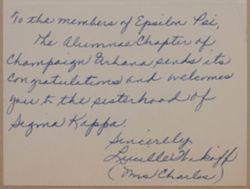 To the members of Epsilon Psi,
The Alumnae Chapter of
Champaign Urbana sends its
congratulations and welcomes
you to the sisterhood of
Sigma Kappa.
Sincerely
Lucille Wikoff
(Mrs Charles)